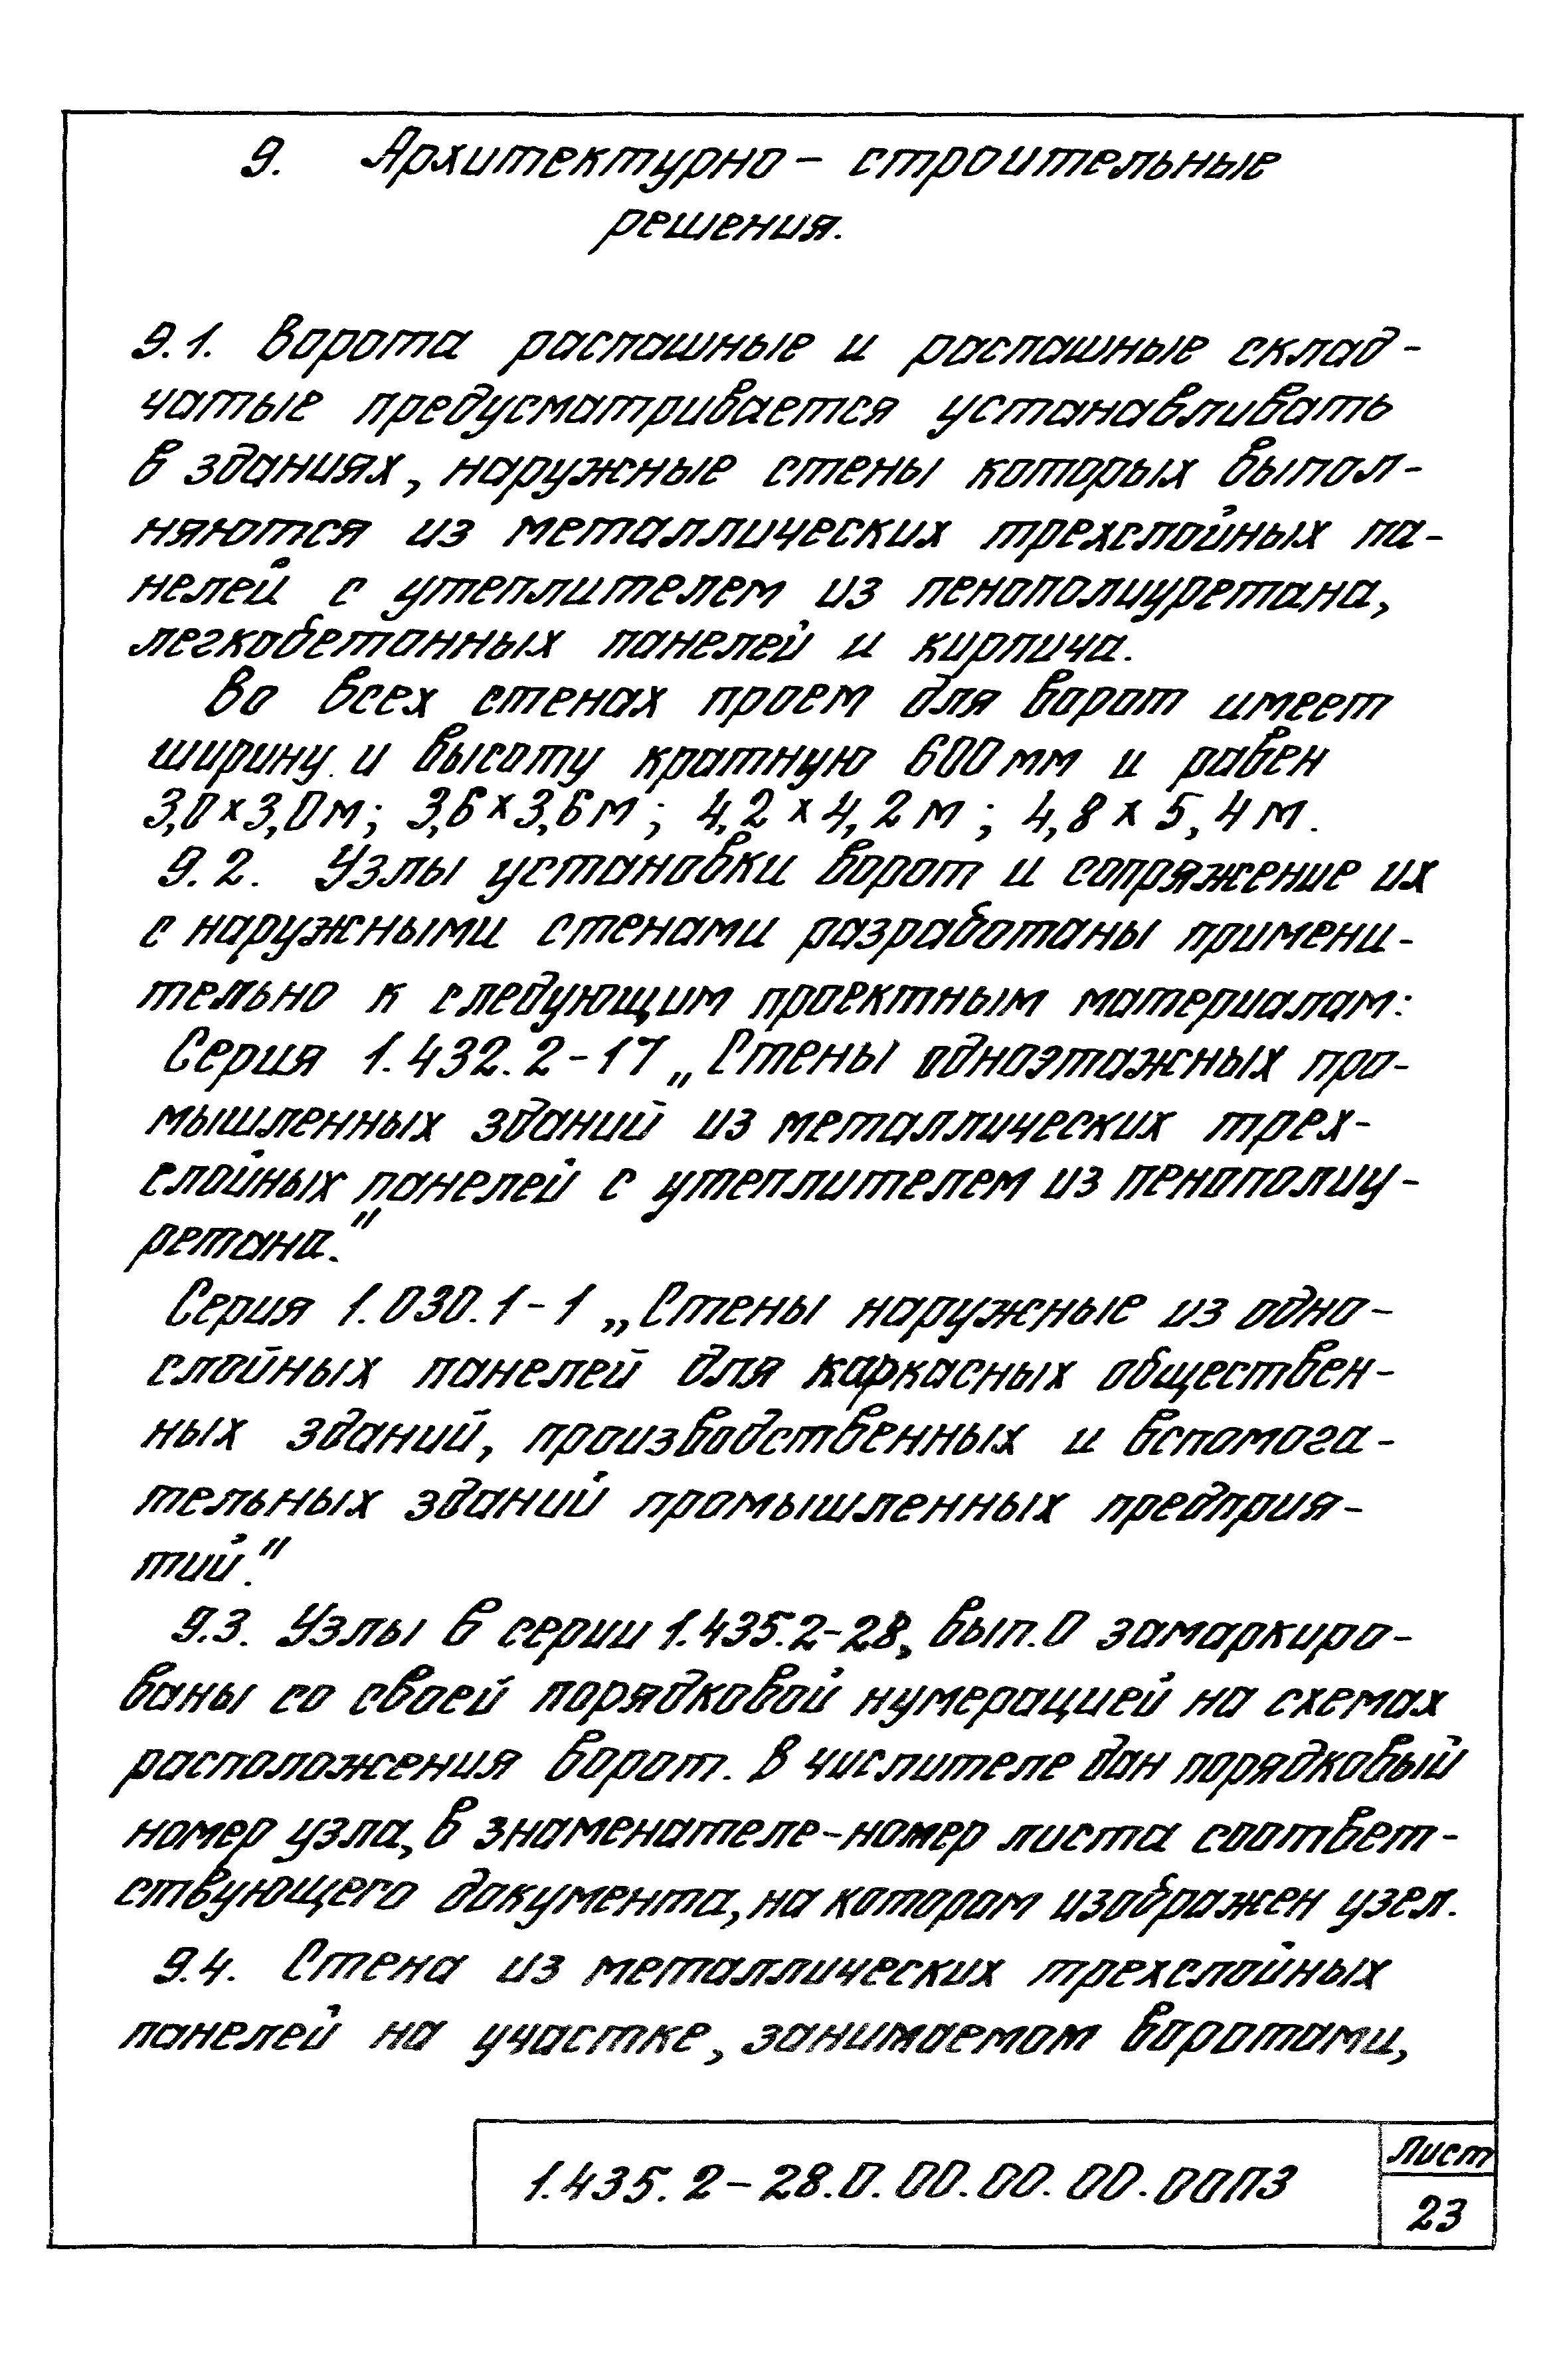 9. Архитектурно - строительные
решения.
9.1. Ворота распашные и распашные склад-
чатые предусматривается устанавливать
в зданиях, наружные стены которых выпол-
няются из металлических трехслойных па-
нелей с утеплителем из пенополиуретана,
легкобетонных панелей и кирпича.
Во всех стенах проем для ворот имеет
ширину и высоту кратную 600 мм и равен
3,0 х 3,0 м; 3,6 х 3,6 м; 4,2 х 4,2 м; 4,8 х 5,4 м.
9.2. Узлы установки ворот и сопряжение их
с наружными стенами разработаны примени-
тельно к следующим проектным материалам:
Серия 1.432.2-17 „Стены одноэтажных про-
мышленных зданий из металлических трех-
слойных панелей с утеплителем из пенополиу-
ретана."
Серия 1.030.1-1 „Стены наружные из одно-
слойных панелей для каркасных обществен-
ных зданий, производственных и вспомога-
тельных зданий промышленных предприя-
тий."
9.3. Узлы в серии 1.435.2-28, вып.0 замаркиро-
ваны со своей порядковой нумерацией на схемах
расположения ворот. В числителе дан порядковый
номер узла, в знаменателе-номер листа соответ-
ствующего документа, на котором изображен узел.
9.4. Стена из металлических трехслойных
панелей на участке, занимаемом воротами,
1.435.2-28.0.00.00.00.00ПЗ
Лист
23